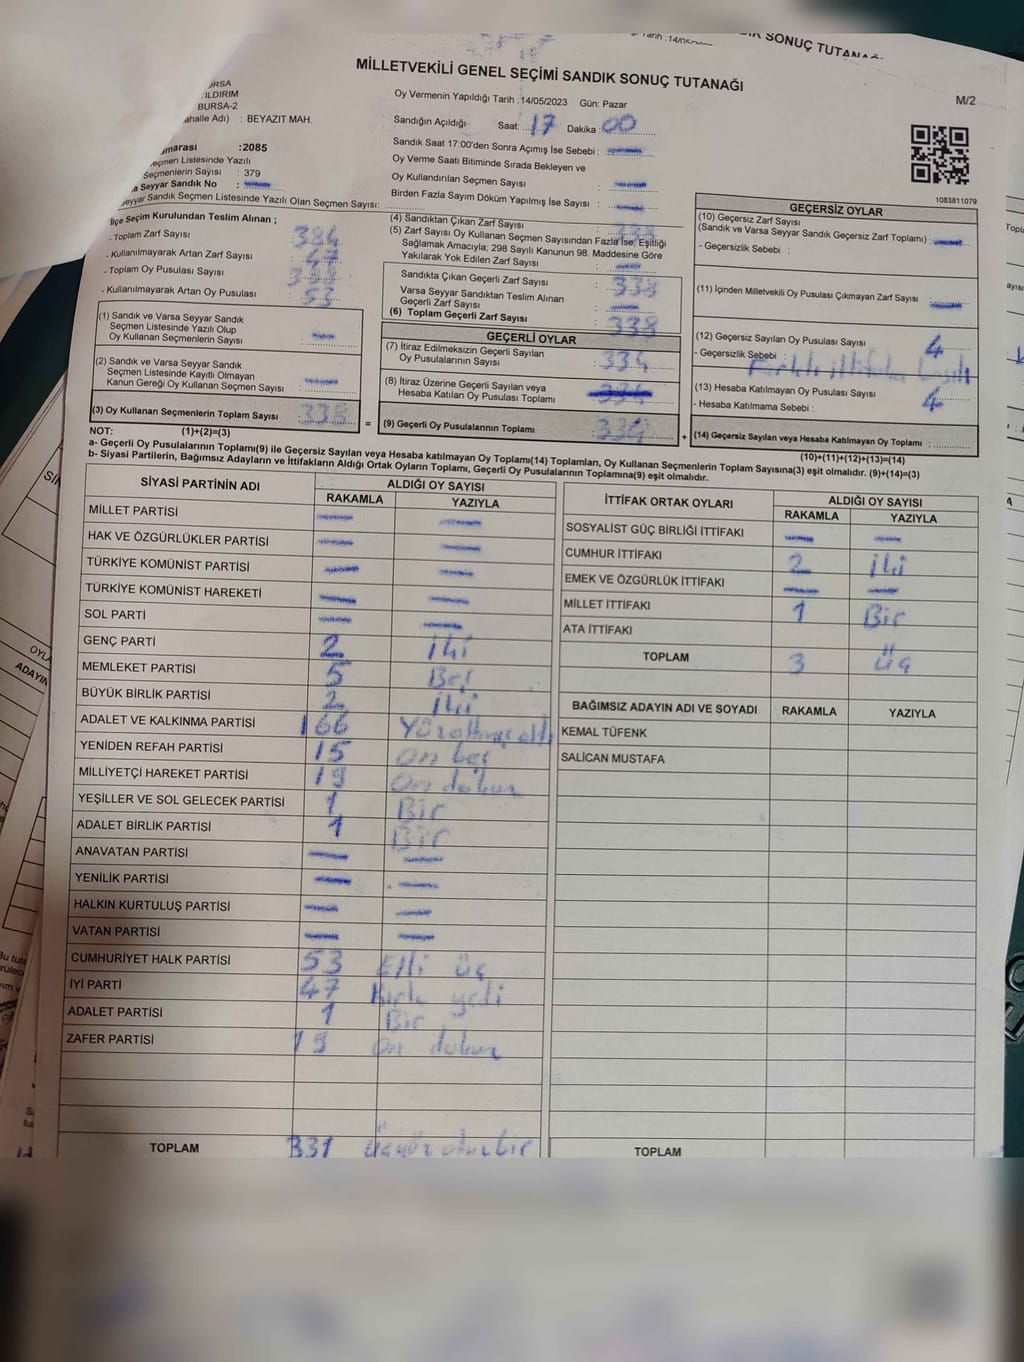 Tarih :14/05/
SONUÇ TUTANAĞI
MİLLETVEKİLİ GENEL SEÇİMİ SANDIK SONUÇ TUTANAĞI
M/2
URSA
ILDIRIM
BURSA-2
ahalle Adı) : BEYAZIT MAH.
Oy Vermenin Yapıldığı Tarih :14/05/2023 Gün: Pazar
Sandığın Açıldığı Saat : 17 Dakika : 00
Sandık Saat 17:00'den Sonra Açımış İse Sebebi :
Oy Verme Saati Bitiminde Sırada Bekleyen ve
Oy Kullandırılan Seçmen Sayısı :
Birden Fazla Sayım Döküm Yapılmış İse Sayısı :
umarası :2085
eçmen Listesinde Yazılı
Seçmenlerin Sayısı : 379
a Seyyar Sandık No :
eyyar Sandık Seçmen Listesinde Yazılı Olan Seçmen Sayısı:
1083811079
İlçe Seçim Kurulundan Teslim Alınan ;
- Toplam Zarf Sayısı : 384
- Kullanılmayarak Artan Zarf Sayısı : 47
- Toplam Oy Pusulası Sayısı :
- Kullanılmayarak Artan Oy Pusulası : 53
(1) Sandık ve Varsa Seyyar Sandık
Seçmen Listesinde Yazılı Olup
Oy Kullanan Seçmenlerin Sayısı :
(2) Sandık ve Varsa Seyyar Sandık
Seçmen Listesinde Kayıtlı Olmayan
Kanun Gereği Oy Kullanan Seçmen Sayısı :
(3) Oy Kullanan Seçmenlerin Toplam Sayısı : 338
(4) Sandıktan Çıkan Zarf Sayısı : 338
(5) Zarf Sayısı Oy Kullanan Seçmen Sayısından Fazla İse, Eşitliği
Sağlamak Amacıyla; 298 Sayılı Kanunun 98. Maddesine Göre
Yakılarak Yok Edilen Zarf Sayısı :
Sandıkta Çıkan Geçerli Zarf Sayısı : 338
Varsa Seyyar Sandıktan Teslim Alınan
Geçerli Zarf Sayısı :
(6) Toplam Geçerli Zarf Sayısı : 338
GEÇERLİ OYLAR
(7) İtiraz Edilmeksizin Geçerli Sayılan
Oy Pusulalarının Sayısı : 334
(8) İtiraz Üzerine Geçerli Sayılan veya
Hesaba Katılan Oy Pusulası Toplamı :
= (9) Geçerli Oy Pusulalarının Toplamı : 334 +
GEÇERSİZ OYLAR
(10) Geçersiz Zarf Sayısı
(Sandık ve Varsa Seyyar Sandık Geçersiz Zarf Toplamı) :
- Geçersizlik Sebebi :
(11) İçinden Milletvekili Oy Pusulası Çıkmayan Zarf Sayısı :
(12) Geçersiz Sayılan Oy Pusulası Sayısı : 4
- Geçersizlik Sebebi : Farklı ittifaka
(13) Hesaba Katılmayan Oy Pusulası Sayısı : 4
- Hesaba Katılmama Sebebi :
(14) Geçersiz Sayılan veya Hesaba Katılmayan Oy Toplamı :
NOT: (1)+(2)=(3)
(10)+(11)+(12)+(13)=(14)
a- Geçerli Oy Pusulalarının Toplamı(9) ile Geçersiz Sayılan veya Hesaba katılmayan Oy Toplamı(14) Toplamları, Oy Kullanan Seçmenlerin Toplam Sayısına(3) eşit olmalıdır. (9)+(14)=(3)
b- Siyasi Partilerin, Bağımsız Adayların ve İttifakların Aldığı Ortak Oyların Toplamı, Geçerli Oy Pusulalarının Toplamına(9) eşit olmalıdır.
SİYASİ PARTİNİN ADI
ALDIĞI OY SAYISI
RAKAMLA YAZIYLA
MİLLET PARTİSİ
HAK VE ÖZGÜRLÜKLER PARTİSİ
TÜRKİYE KOMÜNİST PARTİSİ
TÜRKİYE KOMÜNİST HAREKETİ
SOL PARTİ
GENÇ PARTİ 2 iki
MEMLEKET PARTİSİ 5 Beş
BÜYÜK BİRLİK PARTİSİ 2 iki
ADALET VE KALKINMA PARTİSİ 166 Yüzaltmış altı
YENİDEN REFAH PARTİSİ 15 on beş
MİLLİYETÇİ HAREKET PARTİSİ 19 on dokuz
YEŞİLLER VE SOL GELECEK PARTİSİ 1 Bir
ADALET BİRLİK PARTİSİ 1 Bir
ANAVATAN PARTİSİ
YENİLİK PARTİSİ
HALKIN KURTULUŞ PARTİSİ
VATAN PARTİSİ
CUMHURİYET HALK PARTİSİ 53 Elli üç
İYİ PARTİ 47 Kırk yedi
ADALET PARTİSİ 1 Bir
ZAFER PARTİSİ 19 on dokuz
TOPLAM 331 üçyüz otuz bir
İTTİFAK ORTAK OYLARI
ALDIĞI OY SAYISI
RAKAMLA YAZIYLA
SOSYALİST GÜÇ BİRLİĞİ İTTİFAKI
CUMHUR İTTİFAKI 2 iki
EMEK VE ÖZGÜRLÜK İTTİFAKI
MİLLET İTTİFAKI 1 Bir
ATA İTTİFAKI
TOPLAM 3 üç
BAĞIMSIZ ADAYIN ADI VE SOYADI RAKAMLA YAZIYLA
KEMAL TÜFENK
SALİCAN MUSTAFA
TOPLAM